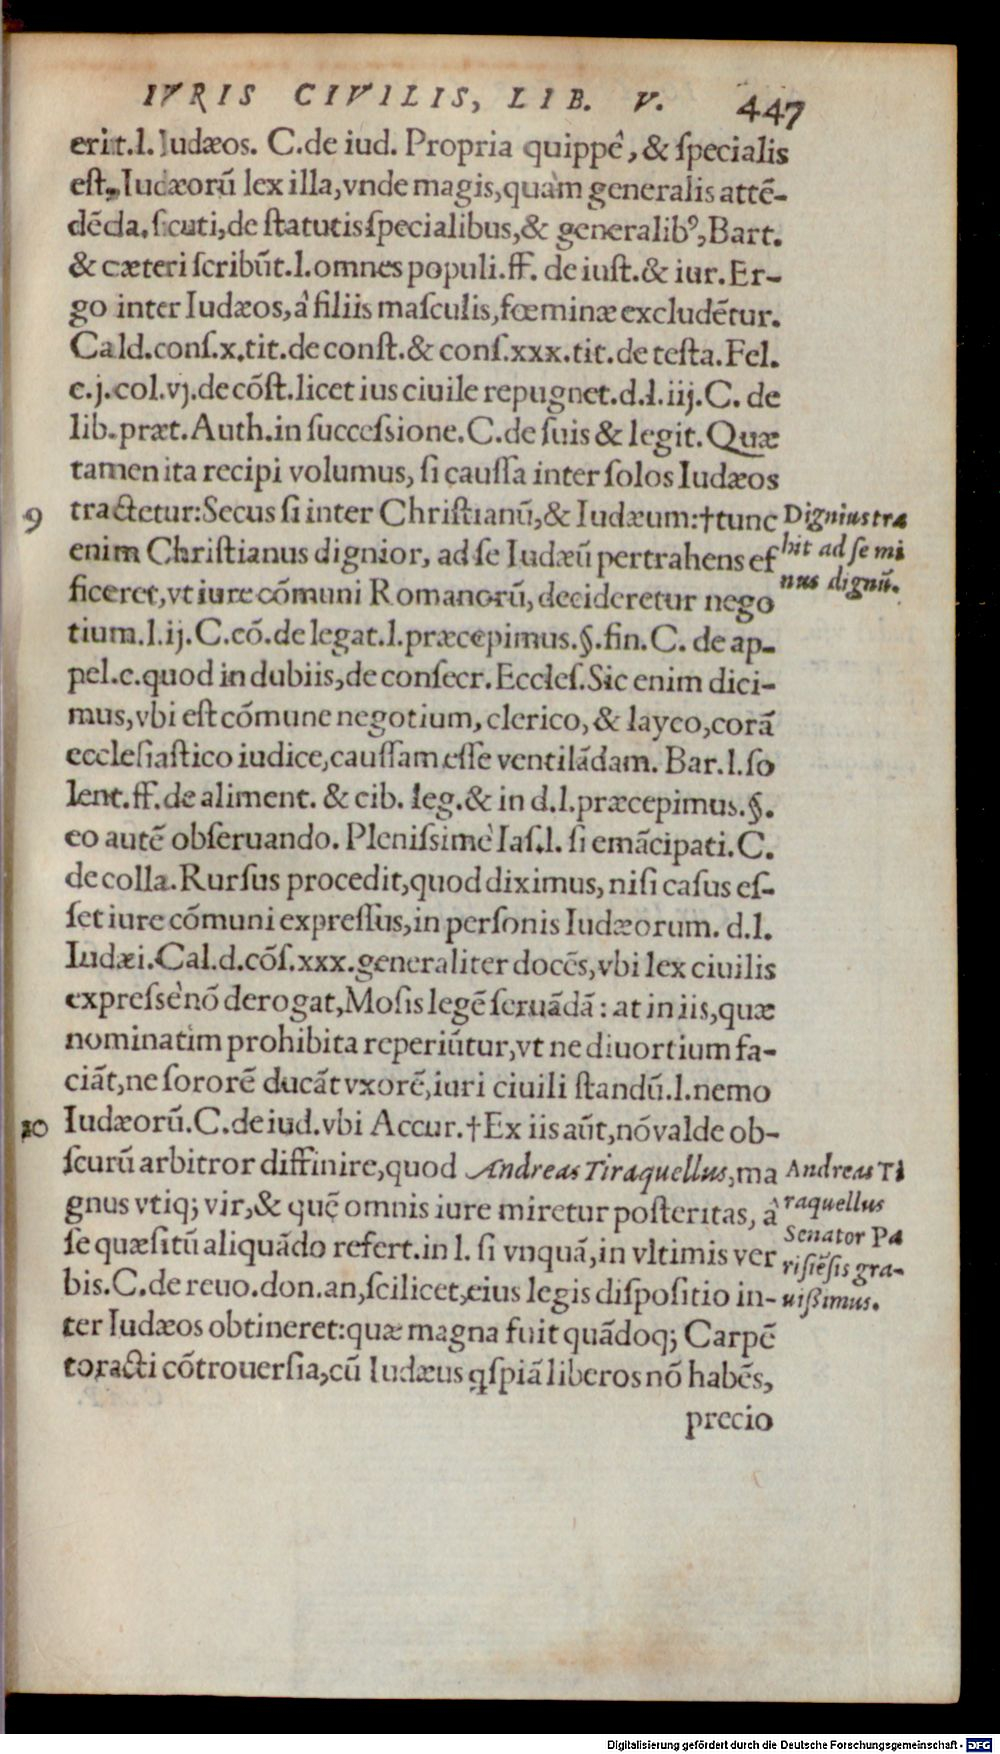 IVRIS CIVILIS, LIB. V. 447
erit.l. Iudæos. C.de iud. Propria quippê, & ſpecialis
eſt, Iudæorũ lex illa, vnde magis, quàm generalis attẽ-
dẽda, ſicuti, de ſtatutis ſpecialibus, & generalibꝰ, Bart.
& cæteri ſcribũt.l.omnes populi.ff. de iuſt.& iur. Er-
go inter Iudæos, â filiis maſculis, fœminæ excludẽtur.
Cald.conſ.x.tit.de conſt.& conſ.xxx.tit.de teſta.Fel.
c.j.col.vj.de cõſt.licet ius ciuile repugnet.d.l.iij.C. de
lib.præt.Auth.in ſucceſsione.C.de ſuis & legit. Quæ
tamen ita recipi volumus, ſi cauſſa inter ſolos Iudæos
9 tractetur: Secus ſi inter Chriſtianũ, & Iudæum: †tunc
enim Chriſtianus dignior, ad ſe Iudæũ pertrahens ef
ficeret, vt iure cõmuni Romanorũ, decideretur nego
tium.l.ij.C.cõ.de legat.l.præcepimus.§.fin.C. de ap-
pel.c.quod in dubiis, de conſecr.Eccleſ.Sic enim dici-
mus, vbi eſt cõmune negotium, clerico, & layco, corã
eccleſiaſtico iudice, cauſſam eſſe ventilãdam. Bar.l.ſo
lent.ff.de aliment. & cib. leg.& in d.l.præcepimus.§.
eo autẽ obſeruando. Pleniſsimè Iaſ.l. ſi emãcipati.C.
de colla.Rurſus procedit, quod diximus, niſi caſus eſ-
ſet iure cõmuni expreſſus, in perſonis Iudæorum. d.l.
Iudæi.Cal.d.cõſ.xxx.generaliter docẽs, vbi lex ciuilis
expreſsè nõ derogat, Moſis legẽ ſeruãdã: at in iis, quæ
nominatim prohibita reperiũtur, vt ne diuortium fa-
ciãt, ne ſororẽ ducãt vxorẽ, iuri ciuili ſtandũ.l.nemo
10 Iudæorũ.C.de iud.vbi Accur.†Ex iis aũt, nõ valde ob-
ſcurũ arbitror diffinire, quod Andreas Tiraquellus, ma
gnus vtiq; vir, & quẽ omnis iure miretur poſteritas, â
ſe quæſitũ aliquãdo refert.in l. ſi vnquã, in vltimis ver
bis.C.de reuo.don.an, ſcilicet, eius legis diſpoſitio in-
ter Iudæos obtineret: quæ magna fuit quãdoq; Carpẽ
toracti cõtrouerſia, cũ Iudæus qſpiã liberos nõ habẽs,
precio
Dignius tra
hit ad ſe mi
nus dignũ.
Andreas Ti
raquellus
Senator Pa
riſiẽſis gra-
uißimus.
Digitalisierung gefördert durch die Deutsche Forschungsgemeinschaft - DFG